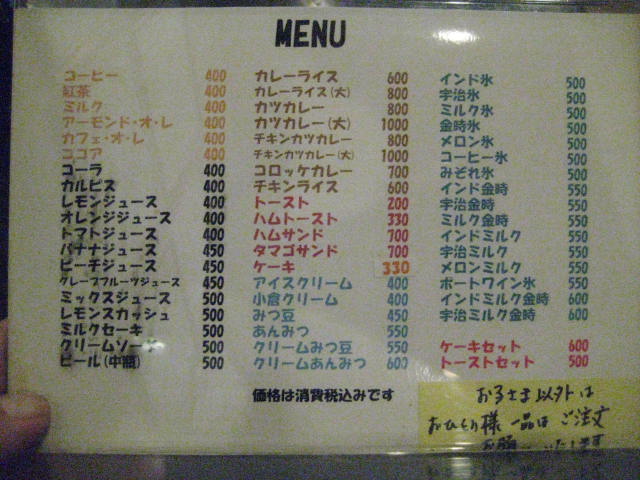 MENU
コーヒー 400
紅茶 400
ミルク 400
アーモンド・オ・レ 400
カフェ・オ・レ 400
ココア 400
コーラ 400
カルピス 400
レモンジュース 400
オレンジジュース 400
トマトジュース 400
バナナジュース 450
ピーチジュース 450
グレープフルーツジュース 450
ミックスジュース 500
レモンスカッシュ 500
ミルクセーキ 500
クリームソーダ 500
ビール(中瓶) 500
カレーライス 600
カレーライス(大) 800
カツカレー 800
カツカレー(大) 1000
チキンカツカレー 800
チキンカツカレー(大) 1000
コロッケカレー 700
チキンライス 600
トースト 200
ハムトースト 330
ハムサンド 700
タマゴサンド 700
ケーキ 330
アイスクリーム 400
小倉クリーム 400
みつ豆 450
あんみつ 550
クリームみつ豆 550
クリームあんみつ 600
価格は消費税込みです
インド氷 500
宇治氷 500
ミルク氷 500
金時氷 500
メロン氷 500
コーヒー氷 500
みぞれ氷 500
インド金時 550
宇治金時 550
ミルク金時 550
インドミルク 550
宇治ミルク 550
メロンミルク 550
ポートワイン氷 550
インドミルク金時 600
宇治ミルク金時 600
ケーキセット 600
トーストセット 500
お子さま以外は
おひとり様 一品は ご注文
お願いいたします